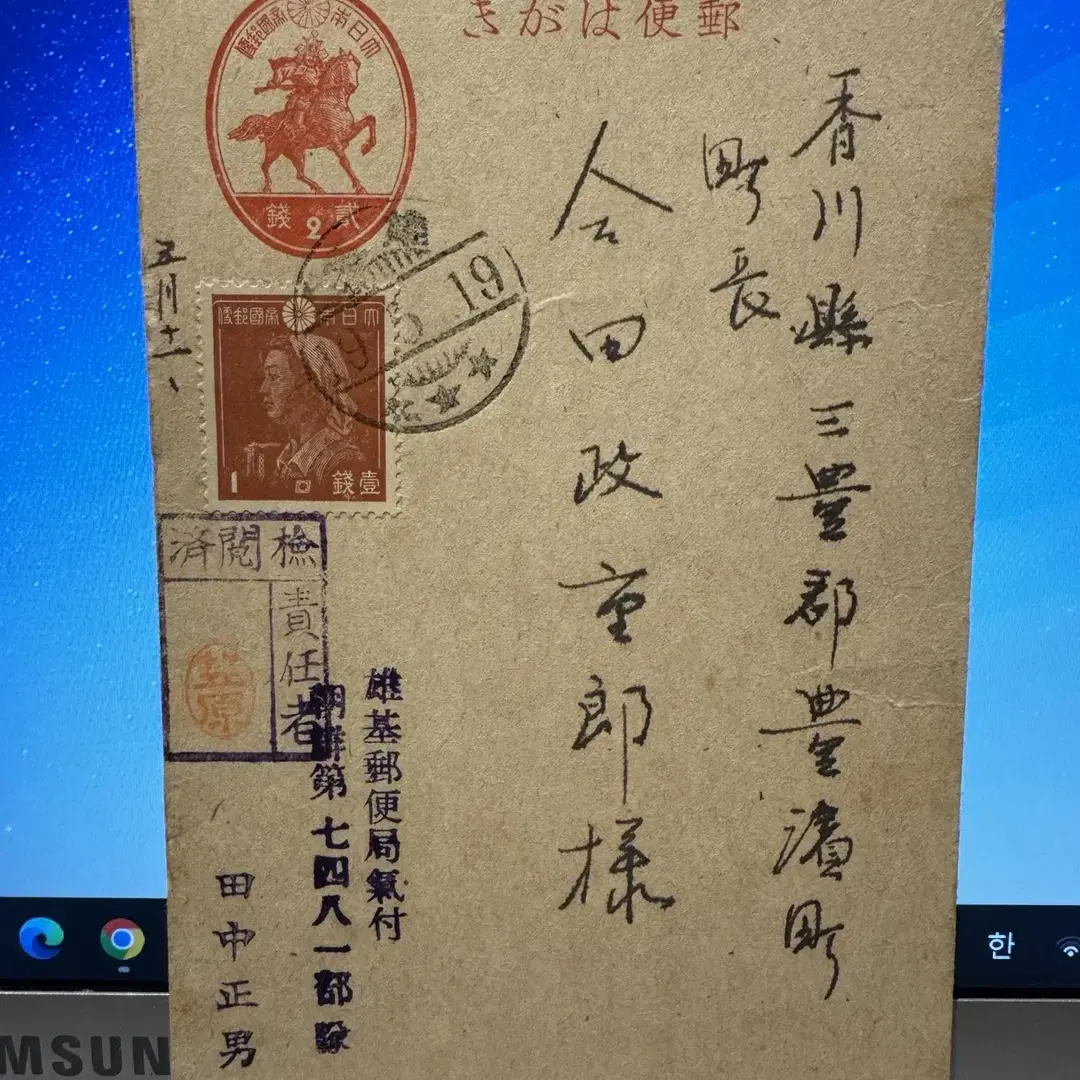 きがは便郵
大日本帝國郵便
貳錢
2
香川縣三豊郡豊濱町
町長
合田政重郎様
五月十一、
19
大日本帝國郵便
1
壹錢
檢閲済
責任者
笠原
雄基郵便局氣付
朝鮮第七四八一部隊
田中正男
한
MSUN